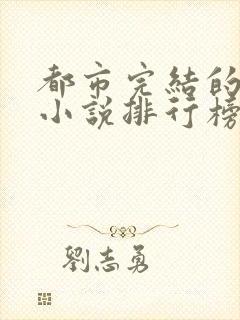 都市完結的
小說排行榜
劉志勇